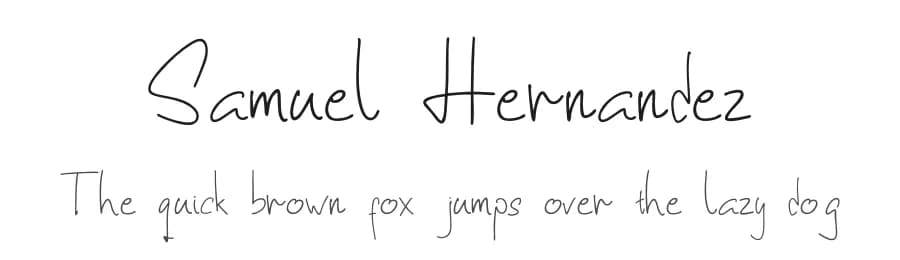 Samuel Hernandez
The quick brown fox jumps over the lazy dog